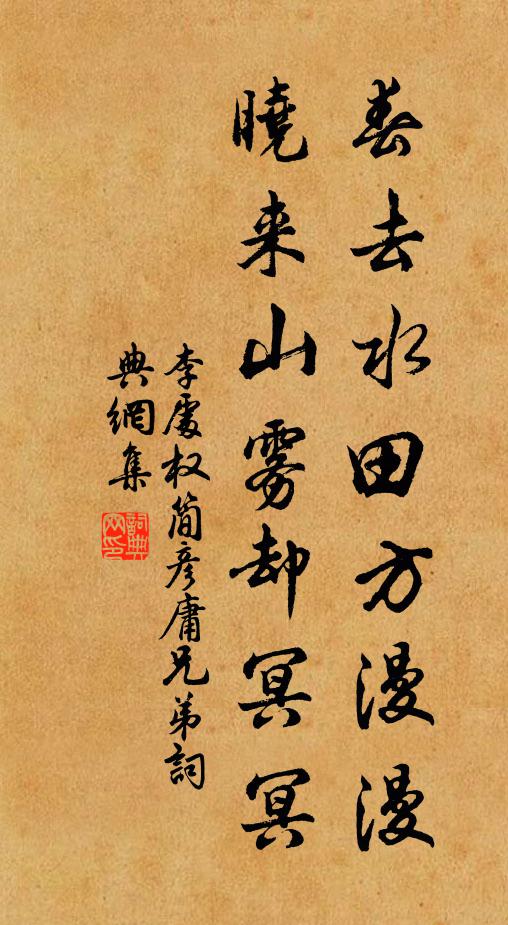 春去水田方漫漫
曉来山雾却冥冥
李處权简彦庸兄弟詞
典網集
詞典网印